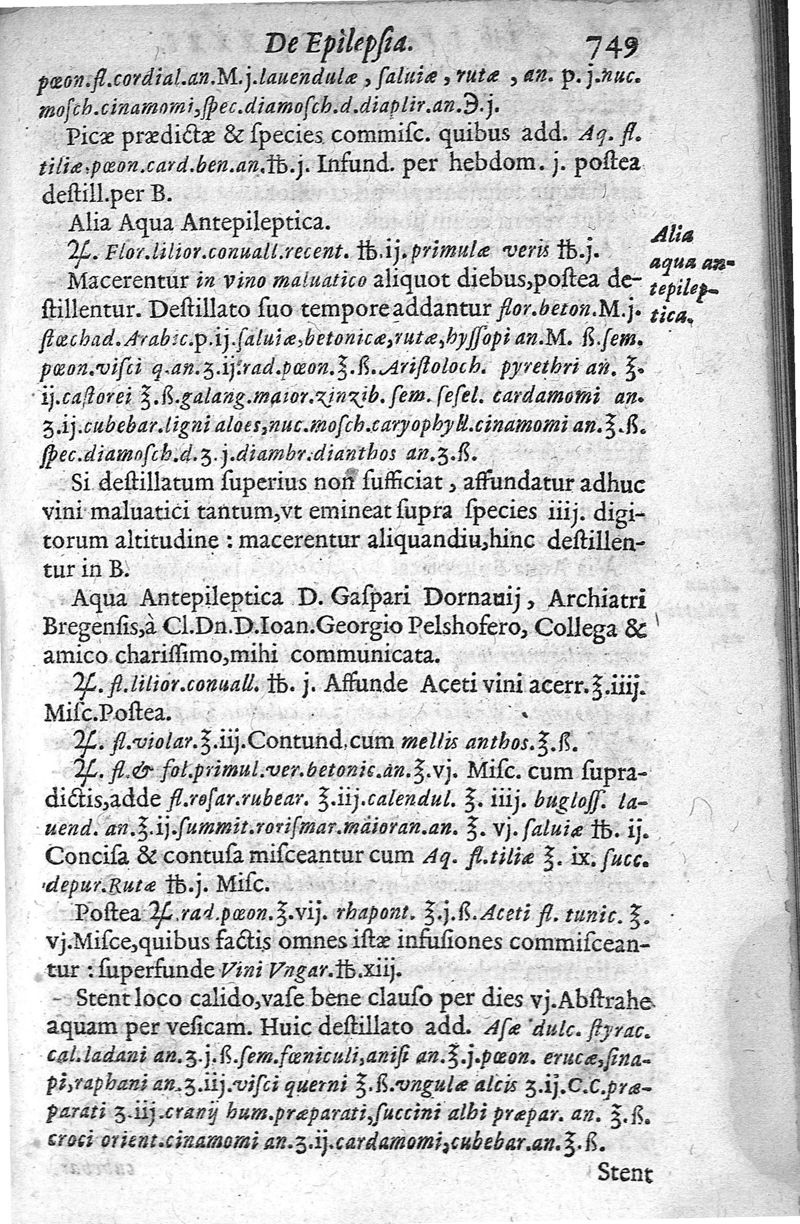 De Epilepſia. 749
pœon.fl.cordial.an.M.j.lauendulæ, ſaluiæ, rutæ, an. p.j.nuc.
moſch.cinamomi,ſpec.diamoſch.d.diaplir.an.℈.j.
Picæ prædictæ & ſpecies commiſc. quibus add. Aq. fl.
tiliæ,pœon.card.ben.an.℔.j. Infund. per hebdom. j. poſtea
deſtill.per B.
Alia Aqua Antepileptica.
♃. Flor.lilior.conuall.recent. ℔.ij.primulæ veris ℔.j.
Alia
aqua an-
tepilep-
tica.
Macerentur in vino maluatico aliquot diebus,poſtea de-
ſtillentur. Deſtillato ſuo tempore addantur flor.beton.M.j.
ſtœchad.Arabic.p.ij.ſaluiæ,betonicæ,rutæ,hyſſopi an.M. ß.ſem.
pœon.viſci q.an.ʒ.ij.rad.pœon.℥.ß.Ariſtoloch. pyrethri an. ℥.
ij.caſtorei ℥.ß.galang.maior.zinzib. ſem. ſeſel. cardamomi an.
ʒ.ij.cubebar.ligni aloes,nuc.moſch.caryophyll.cinamomi an.℥.ß.
ſpec.diamoſch.d.ʒ.j.diambr.dianthos an.ʒ.ß.
Si deſtillatum ſuperius non ſufficiat, affundatur adhuc
vini maluatici tantum,vt emineat ſupra ſpecies iiij. digi-
torum altitudine : macerentur aliquandiu,hinc deſtillen-
tur in B.
Aqua Antepileptica D. Gaſpari Dornauij, Archiatri
Bregenſis,à Cl.Dn.D.Ioan.Georgio Pelshofero, Collega &
amico chariſſimo,mihi communicata.
♃. fl.lilior.conuall. ℔. j. Affunde Aceti vini acerr.℥.iiij.
Miſc.Poſtea.
♃. fl.violar.℥.iij.Contund.cum mellis anthos.℥.ß.
♃. fl.& fol.primul.ver.betonic.an.℥.vj. Miſc. cum ſupra-
dictis,adde fl.roſar.rubear. ℥.iij.calendul. ℥. iiij. bugloſſ. la-
uend. an.℥.ij.ſummit.roriſmar.maioran.an. ℥. vj. ſaluiæ ℔. ij.
Conciſa & contuſa miſceantur cum Aq. fl.tiliæ ℥. ix. ſucc.
depur.Rutæ ℔.j. Miſc.
Poſtea ♃.rad.pœon.℥.vij. rhapont. ℥.j.ß.Aceti fl. tunic. ℥.
vj.Miſce,quibus factis omnes iſtæ infuſiones commiſcean-
tur : ſuperfunde Vini Vngar.℔.xiij.
Stent loco calido,vaſe bene clauſo per dies vj.Abſtrahe
aquam per veſicam. Huic deſtillato add. Aſæ dulc. ſtyrac.
cal.ladani an.ʒ.j.ß.ſem.fœniculi,aniſi an.℥.j.pœon. erucæ,ſina-
pi,raphani an.ʒ.iij.viſci querni ℥.ß.vngulæ alcis ʒ.ij.C.C.præ-
parati ʒ.iij.cranij hum.præparati,ſuccini albi præpar. an. ℥.ß.
croci orient.cinamomi an.ʒ.ij.cardamomi,cubebar.an.℥.ß.
Stent